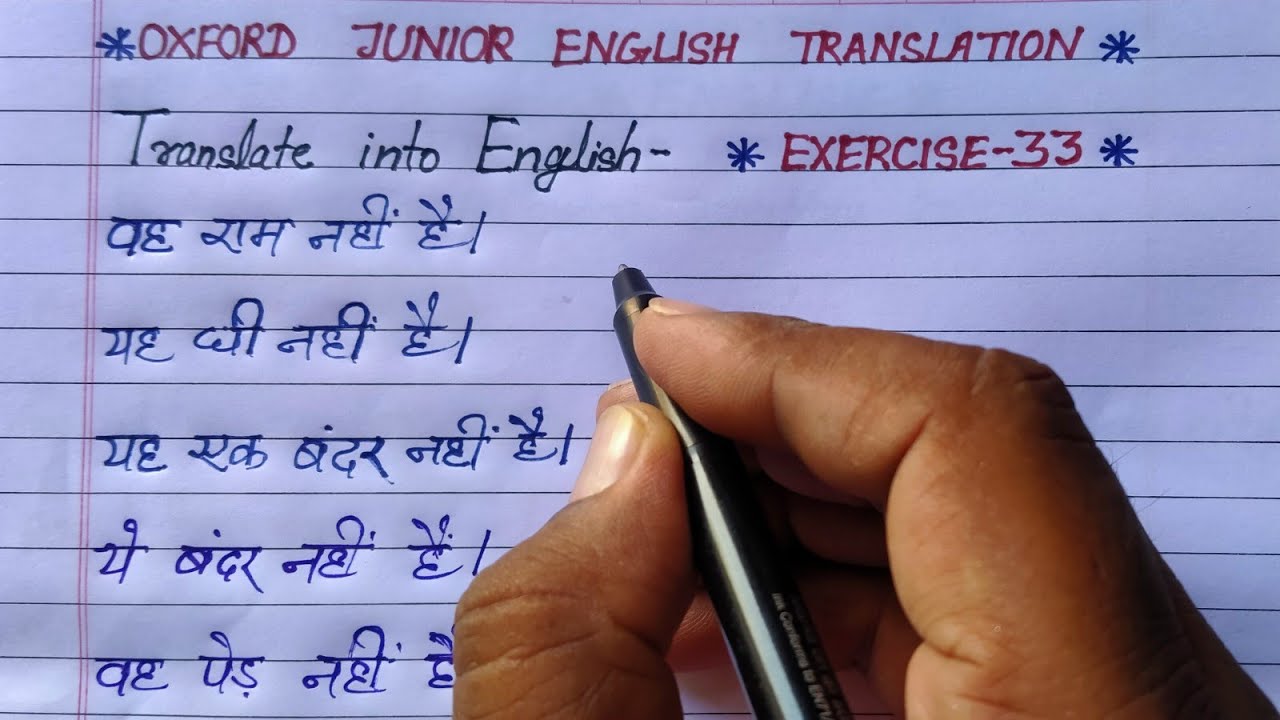 *OXFORD JUNIOR ENGLISH TRANSLATION*
Translate into English- * EXERCISE-33 *
वह राम नहीं है।
यह घी नहीं है।
यह एक बंदर नहीं है।
ये बंदर नहीं हैं।
वह पेड़ नहीं है